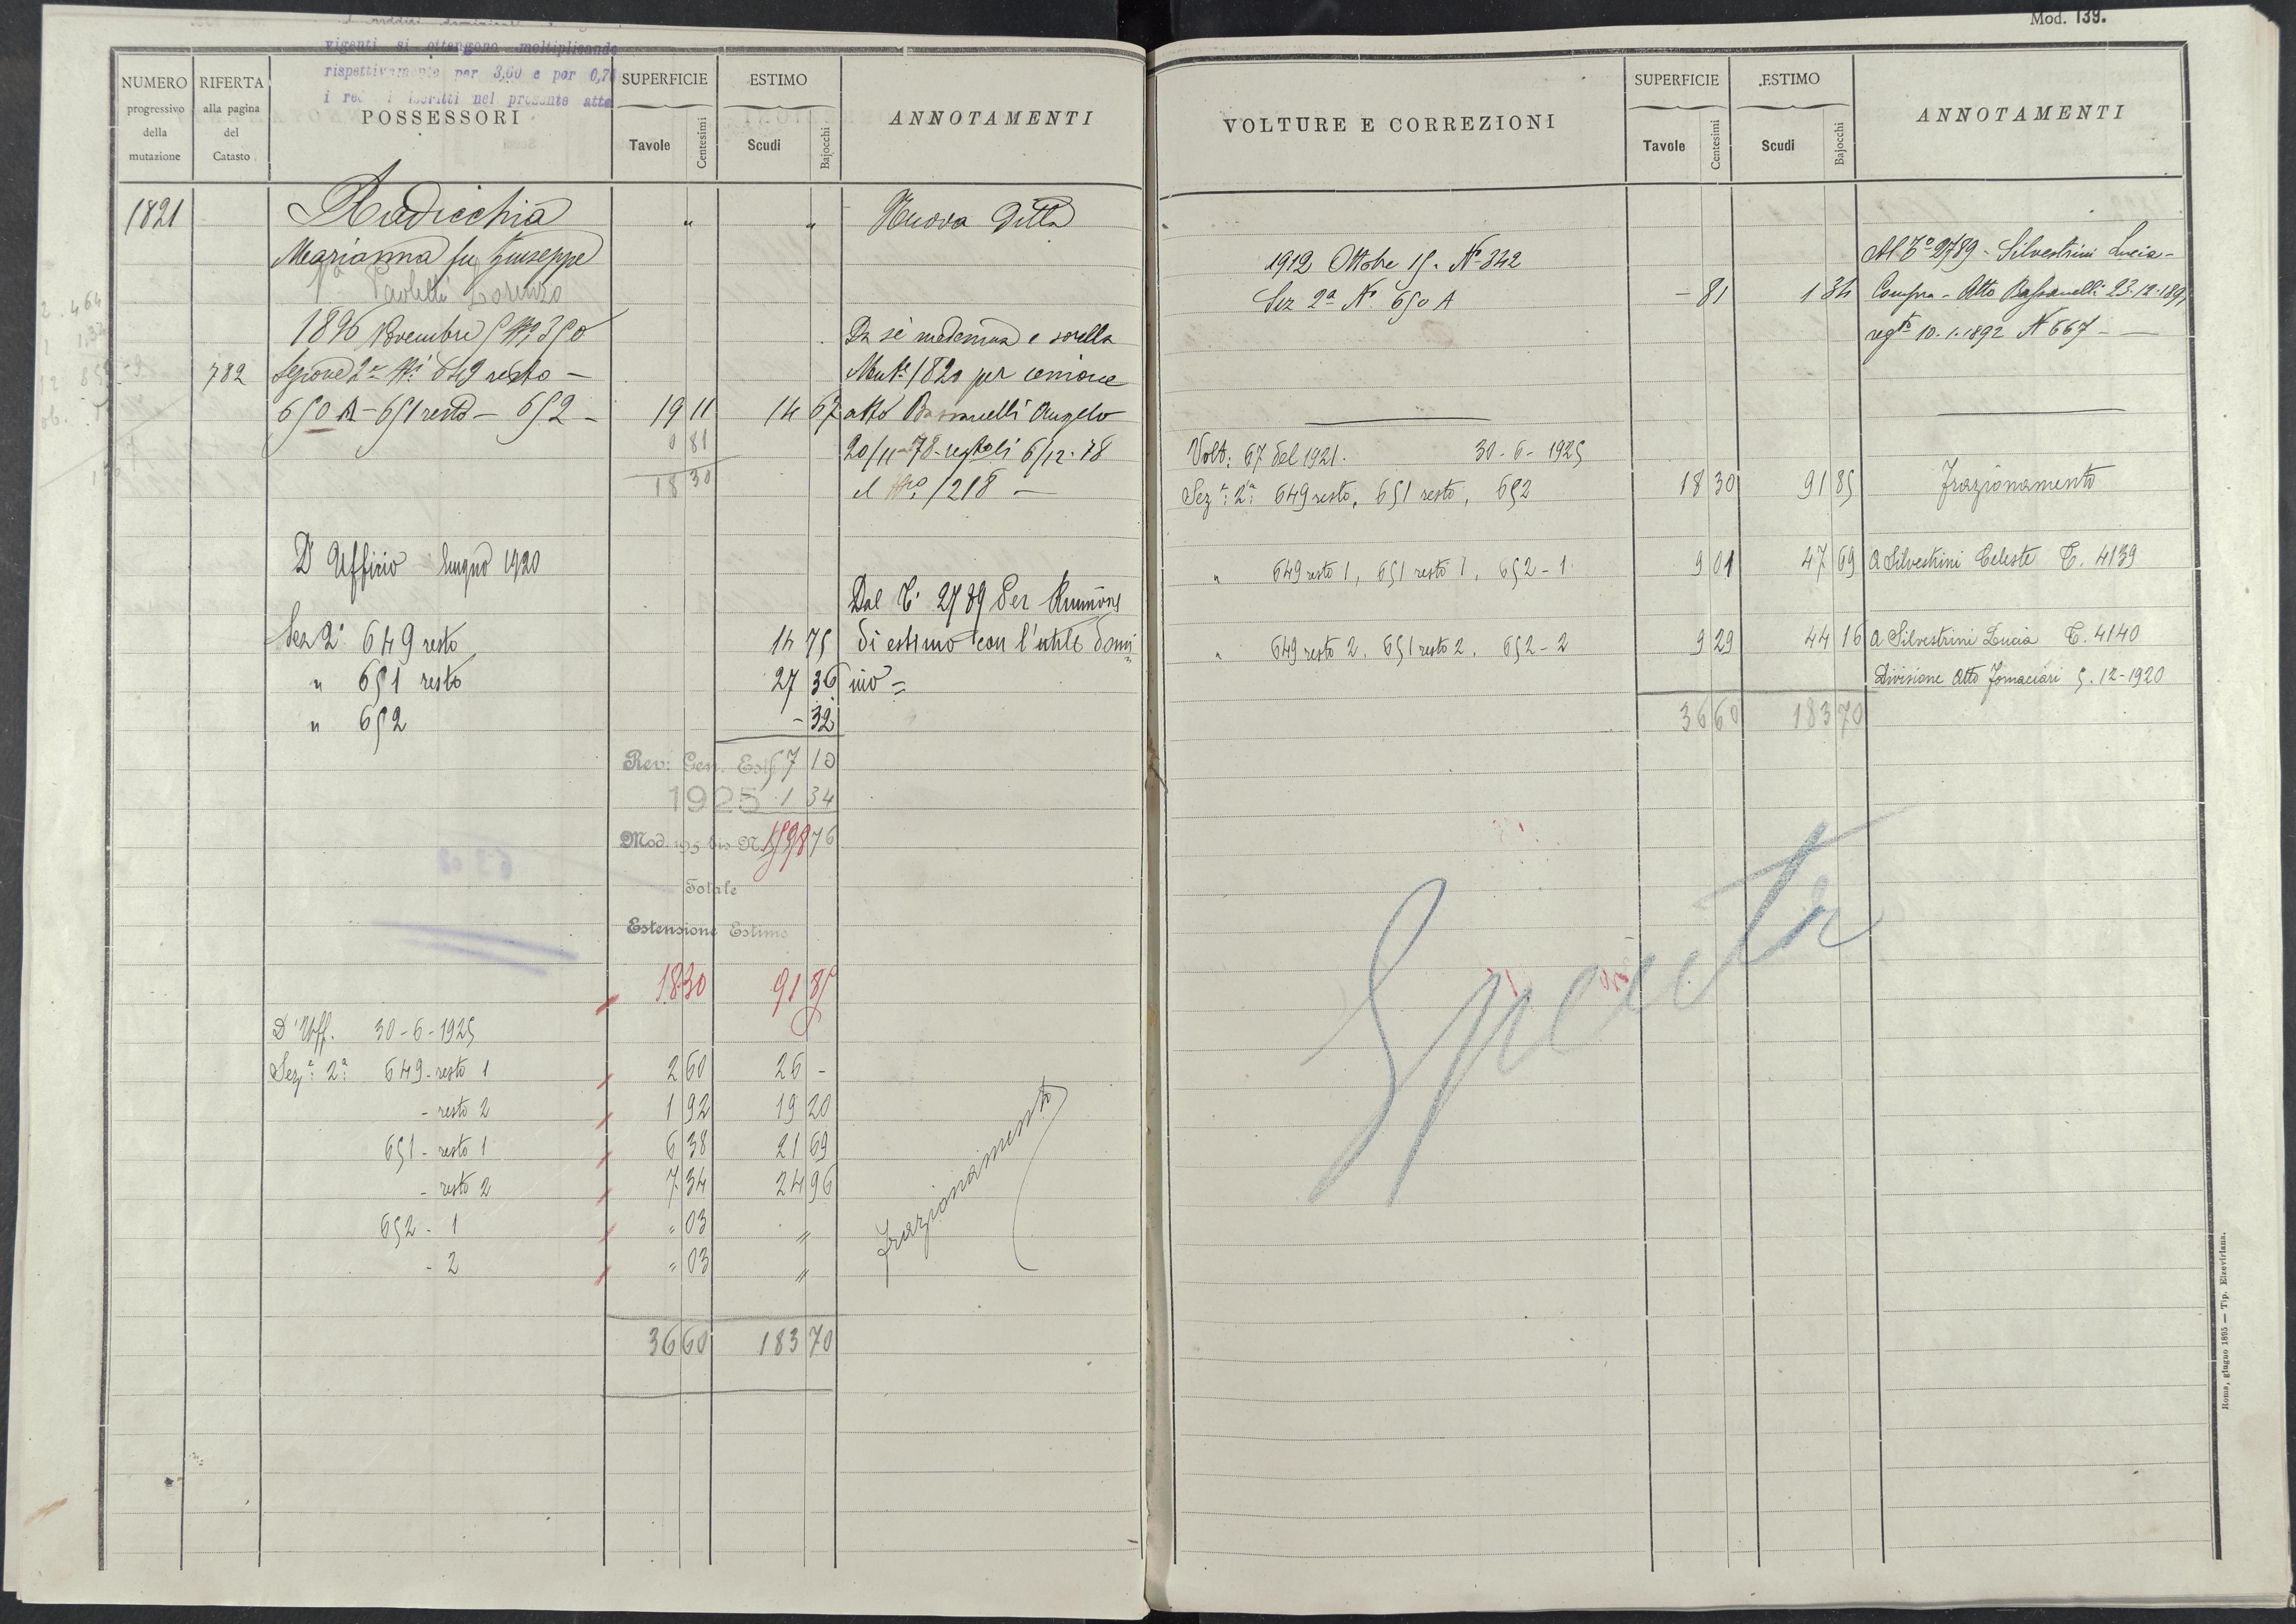 Mod. 139.
vigenti si ottengono moltiplicando
rispettivamente per 3,60 e per 0,70
i iscritti nel presente atto
NUMERO progressivo della mutazione
RIFERTA alla pagina del Catasto
POSSESSORI
SUPERFICIE
Tavole Centesimi
ESTIMO
Scudi Bajocchi
ANNOTAMENTI
1821 Radicchia " " Nuova Ditta
Marianna fu Giuseppe
Va Paoletti Lorenzo
1896 Novembre 5 No 350 Da sè medesima e sorella
782 Sezione 2a Ni 649 resto - Mut. 1820 per
650 A - 651 resto - 652 - 19 11 14 67 atto Bassanelli Angelo
0 81 20/11-78 - 6/12-78
18 30 al No 1218 -
D'Uffizio Giugno 1920
Dal T. 2789 Per Riunione
Sez 2a 649 resto 14 75 di estimo con l'utile domi
" 651 resto 27 36 nio =
" 652 - 32
Rev: Gen. Est. 57 10
1925 1 34
Mod. 195 bis N.
Totale
Estensione Estimo
18 30 91 85
D'Uff. 30-6-1925
Sez.e 2a 649 - resto 1 2 60 26 -
- resto 2 1 92 19 20
651 - resto 1 6 38 21 69
- resto 2 7 34 24 96
652 - 1 " 03 "
- 2 " 03 "
Frazionamento
36 60 183 70
VOLTURE E CORREZIONI
SUPERFICIE
Tavole Centesimi
ESTIMO
Scudi Bajocchi
ANNOTAMENTI
1912 Ottobre 15. No 342 Al To 2789 - Silvestrini Lucia -
Sez 2a No 650 A - 81 1 34 Compra - Atto Bassanelli 23-12-1891
regto 10.1.1892 N 667 -
Volt: 67 del 1921. 30-6-1925
Sez.e 2a 649 resto, 651 resto, 652 18 30 91 85 Frazionamento
" 649 resto 1, 651 resto 1, 652-1 9 01 47 69 A Silvestrini Celeste T. 4139
" 649 resto 2, 651 resto 2, 652-2 9 29 44 16 A Silvestrini Lucia T. 4140
Divisione Atto Fornaciari 5.12-1920
36 60 183 70
Spenta
Roma, giugno 1895 — Tip. Elzeviriana.